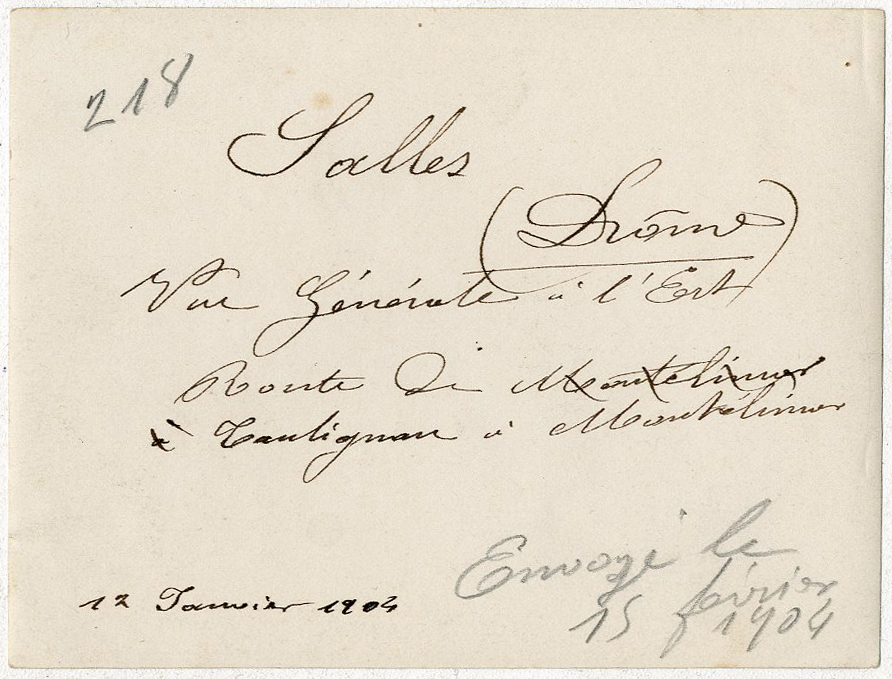 218
Salles
(Drôme)
Vue Générale à l'Est
Route De Montélimar
à Taulignan à Montélimar
Envoyé le
15 février
1904
12 Janvier 1904